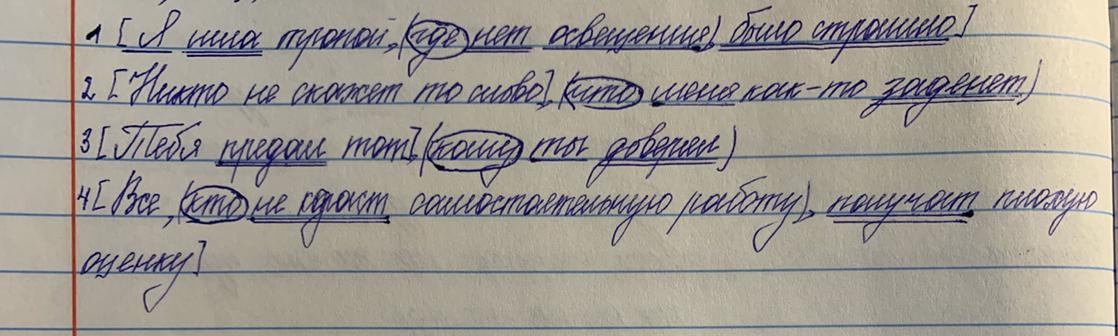 1 [Я шла тропой, (где нет освещения), было страшно]
2 [Никто не скажет то слово], (что меня как-то заденет)
3 [Тебя предал тот], (кому ты доверял)
4 [Все, (кто не сдаст самостоятельную работу), получат плохую
оценку]